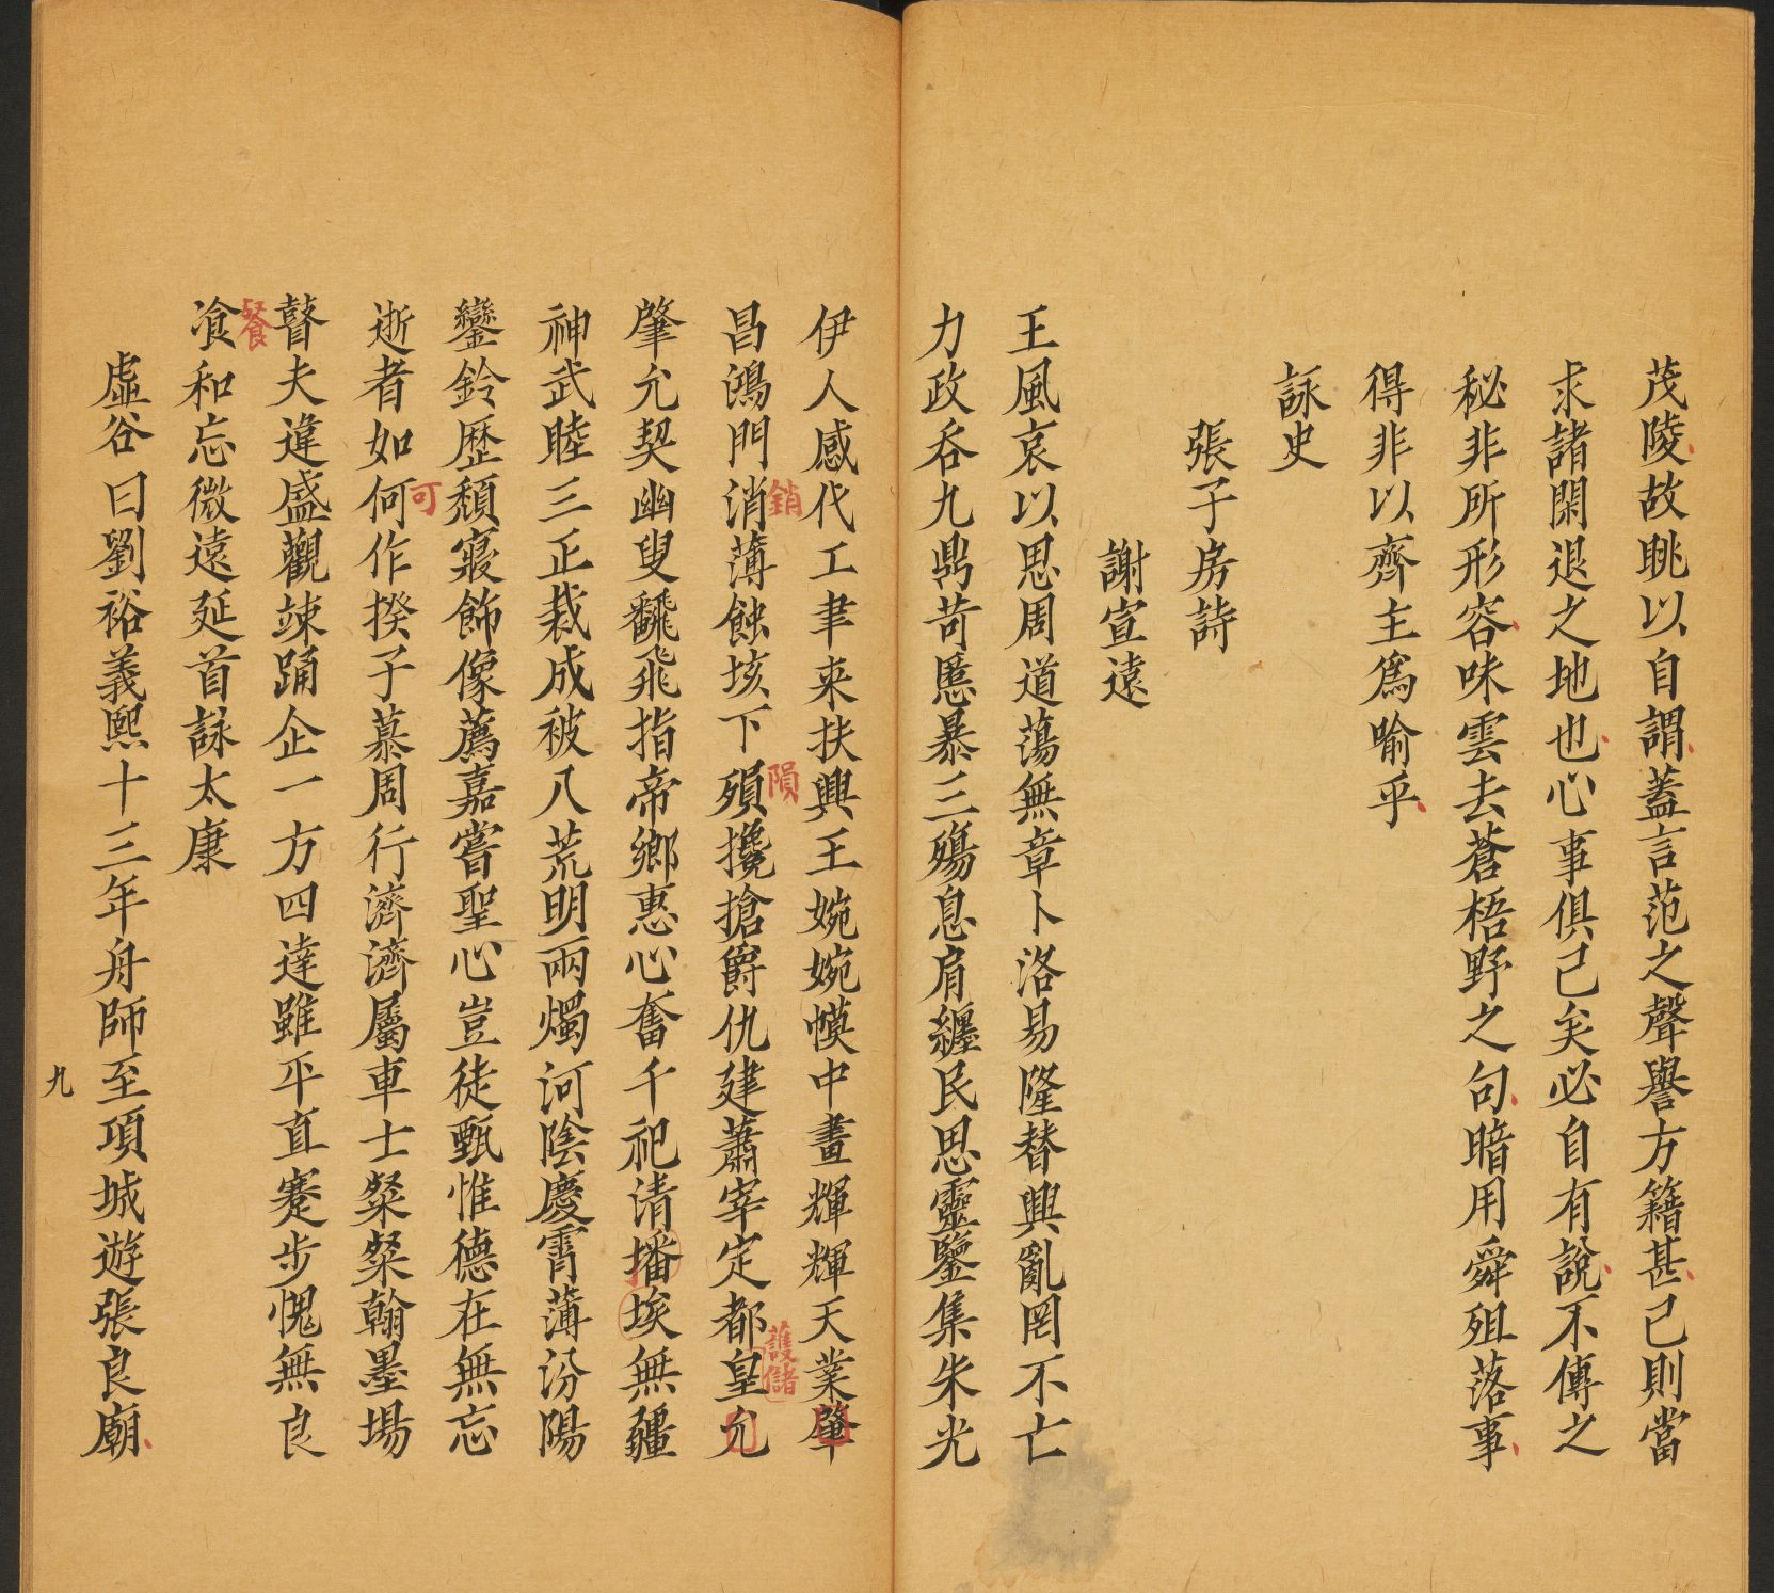 茂陵故眺以自謂蓋言范之聲譽方籍甚己則當
求諸閑退之地也心事俱已矣必自有說不傳之
秘非所形容味雲去蒼梧野之句暗用舜殂落事
得非以齊主爲喻乎
詠史
張子房詩
謝宣遠
王風哀以思周道蕩無章卜洛易隆替興亂罔不亡
力政吞九鼎苛慝暴三殤息肩纏民思靈鑒集朱光
伊人感代工聿来扶興王婉婉幙中畫輝輝天業肇
昌鴻門消薄蝕垓下殞攙搶爵仇建蕭宰定都皇允
銷
隕
護儲
肇允契幽叟飜飛指帝鄉惠心奮千祀清播埃無疆
神武睦三正裁成被八荒明兩燭河陰慶霄薄汾陽
鑾鈴歷頹寢飾像薦嘉嘗聖心豈徒甄惟德在無忘
逝者如何作揆子慕周行濟濟屬車士粲粲翰墨場
可
瞽夫違盛觀竦踊企一方四達雖平直蹇步愧無良
飡和忘微遠延首詠太康
餐
虛谷曰劉裕義熙十三年舟師至項城遊張良廟
九